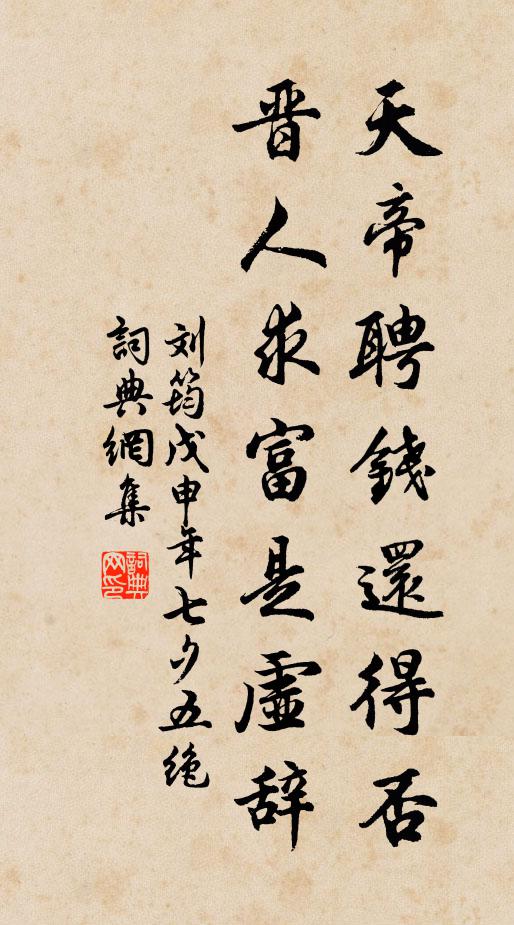 天帝聘錢還得否
晋人求富是虛辞
刘筠戊申年七夕五绝
詞典網集
詞典网印